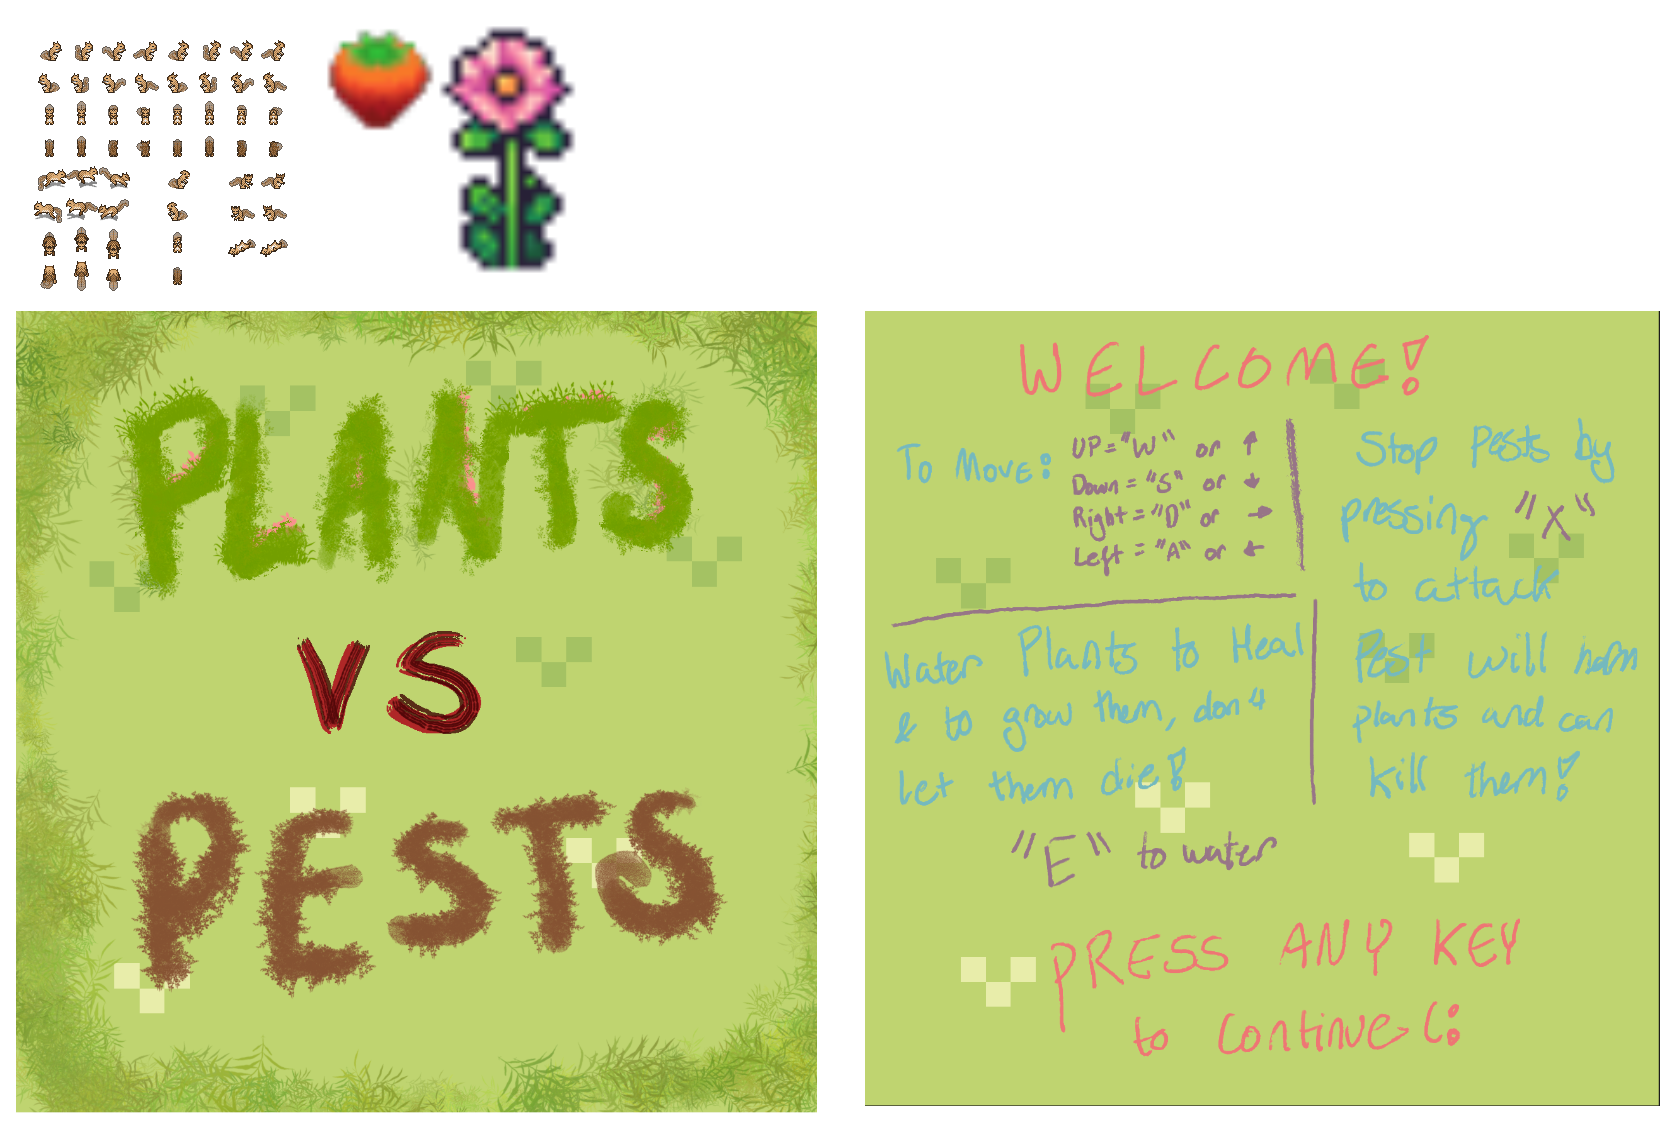 PLANTS
VS
PESTS
WELCOME!
To Move:
UP = "W" or ↑
Down = "S" or ↓
Right = "D" or →
Left = "A" or ←
Stop Pests by
pressing "X"
to attack
Water Plants to Heal
& to grow them, don't
let them die!
"E" to water
Pest will harm
plants and can
kill them!
PRESS ANY KEY
to continue (: